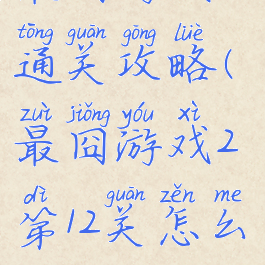 tōng guān gōng lüè
通关攻略(
zuì jiǒng yóu xì
最囧游戏2
dì guān zěn me
第12关怎么